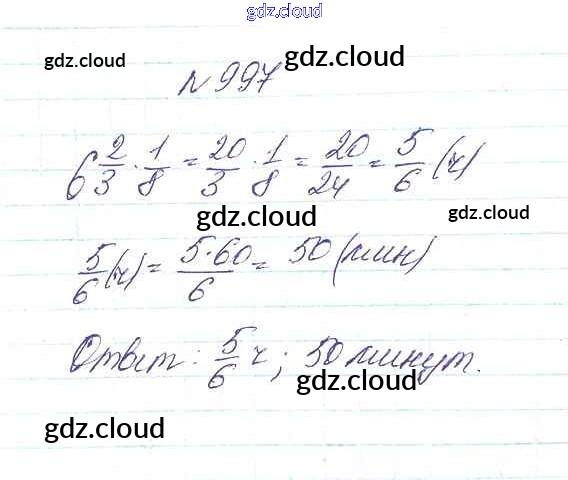 gdz.cloud
gdz.cloud
gdz.cloud gdz.cloud
№ 997
6 2/3 · 1/8 = 20/3 · 1/8 = 20/24 = 5/6 (ч)
gdz.cloud gdz.cloud
5/6 (ч) = 5·60/6 = 50 (мин)
Ответ: 5/6 ч; 50 минут.
gdz.cloud
gdz.cloud
gdz.cloud